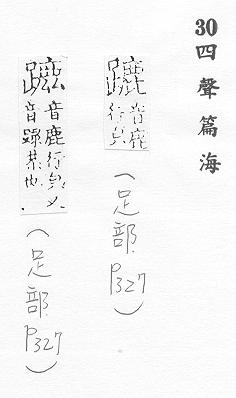 30四聲篇海
蹗音鹿行皃(足部P327)
音鹿行皃又音錄恭也(足部P327)